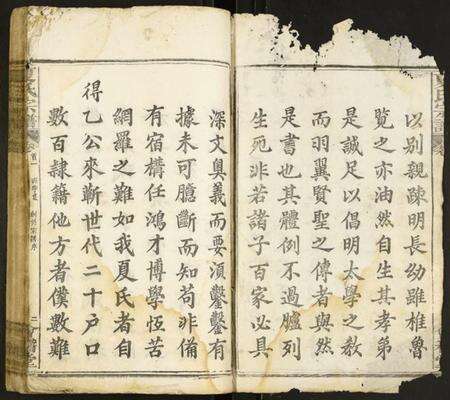 以別親疎明長幼雖椎魯
覽之亦油然自生其孝弟
是誠足以倡明太學之教
而羽翼賢聖之傳者與然
是書也其體例不過臚列
生死非若諸子百家必具
深文奥義而要湏鑿鑿有
據未可臆斷而知苟非備
有宿構任鴻才博學恆苦
網羅之難如我夏氏者自
得乙公來蘄世代二十戶口
數百隷籍他方者僕數難
氏宗譜